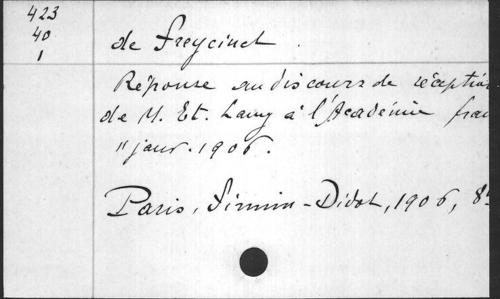 423
40
1
de Freycinet.
Réponse au discours de réception
de M. Et. Lamy à l'Académie fran
11 janv. 1906.
Paris, Firmin-Didot, 1906, 8°